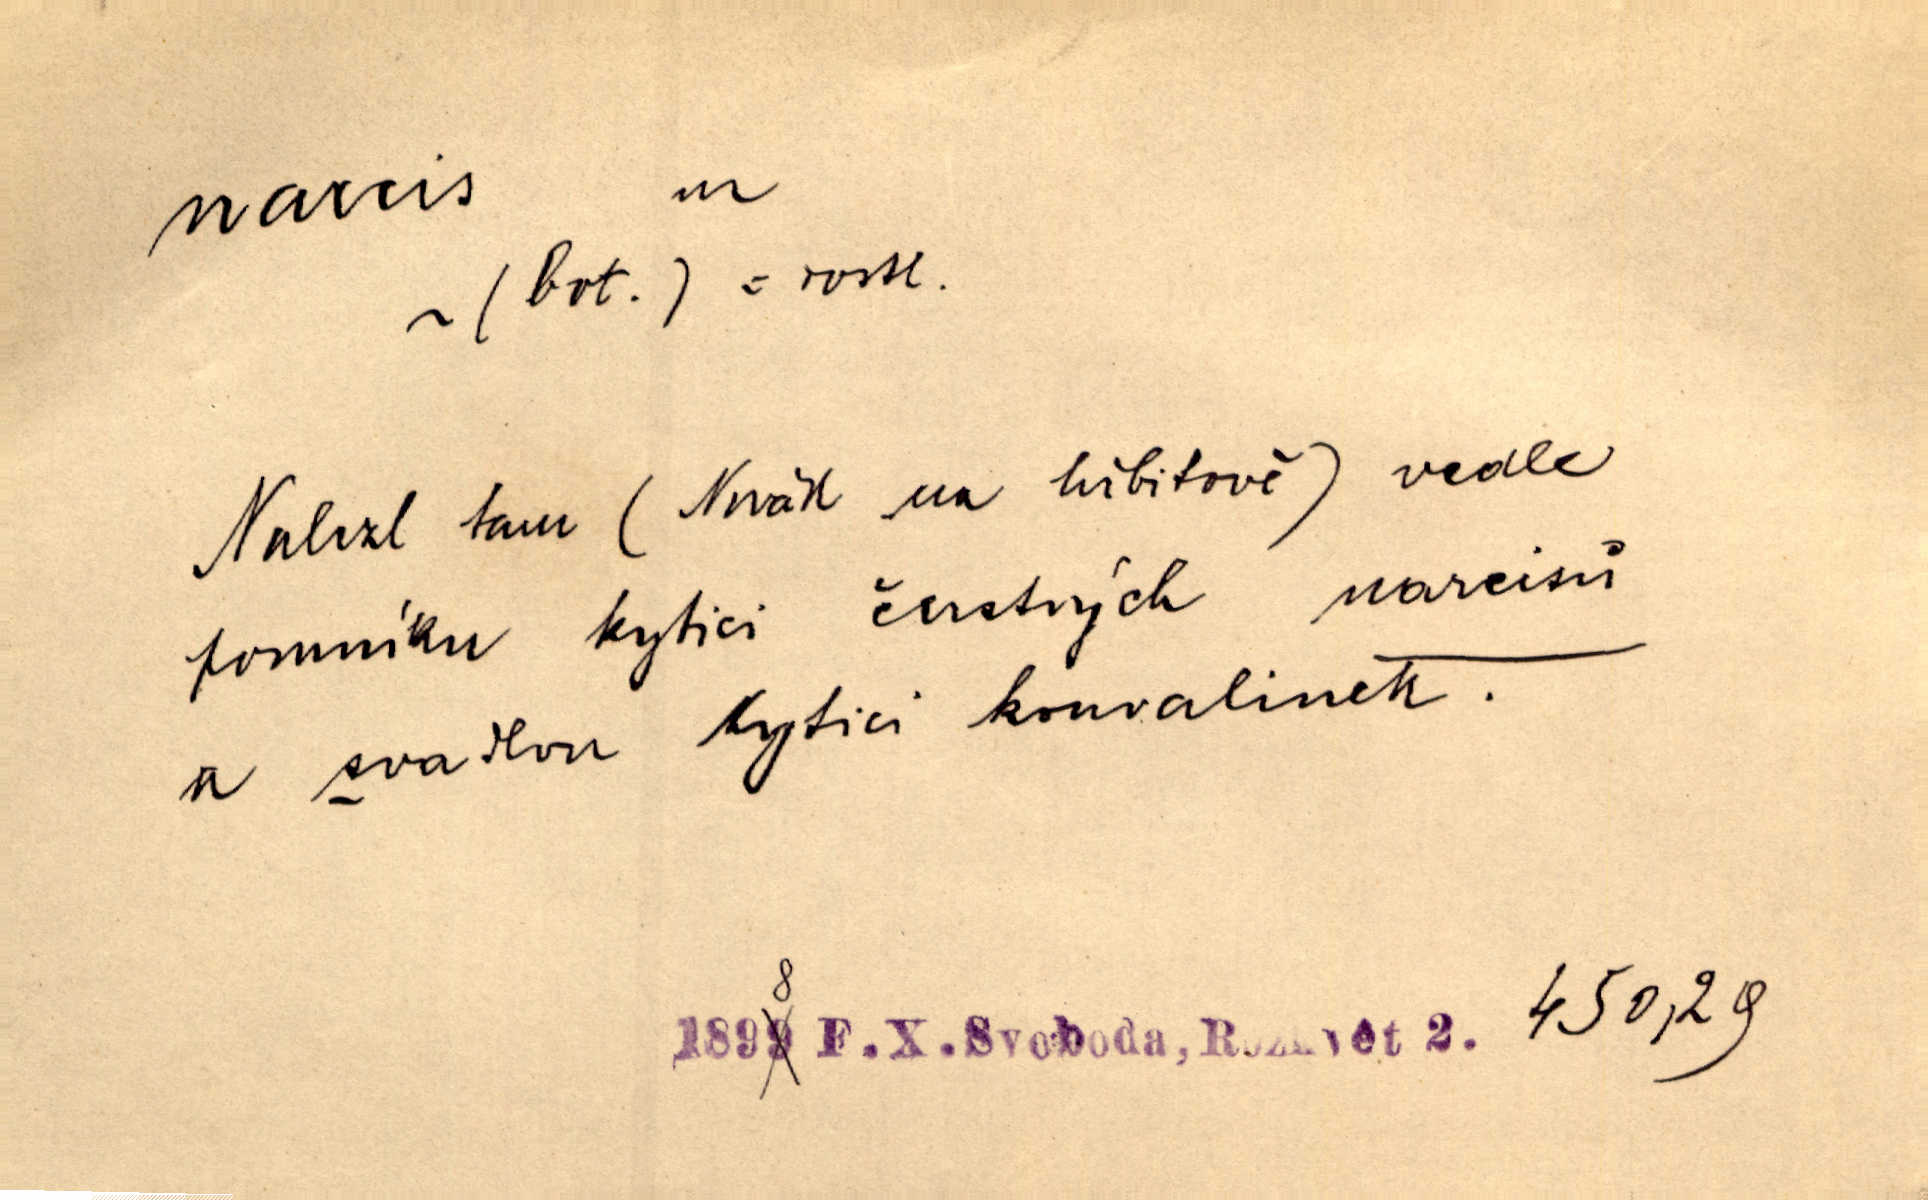 narcis m
~ (bot.) = rostl.
Nalezl tam (Novák na hřbitově) vedle
pomníku kytici čerstvých narcisů
a svadlou kytici konvalinek.
8
1899 F.X.Svoboda, Rozkvět 2. 450,29